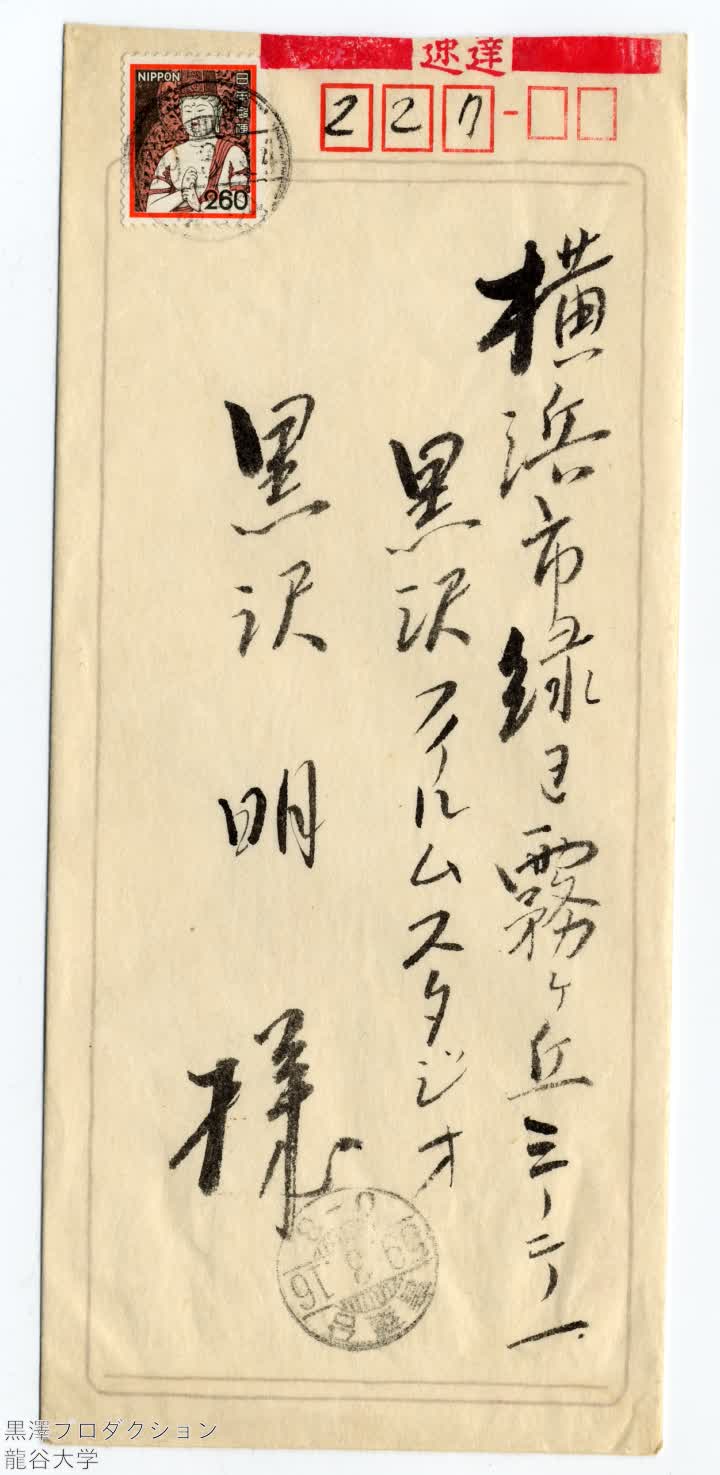 速達
NIPPON
日本郵便
260
227
横浜市緑区霧ヶ丘三ー二ー一
黒沢フィルムスタジオ
黒沢 明 様
黒澤プロダクション
龍谷大学